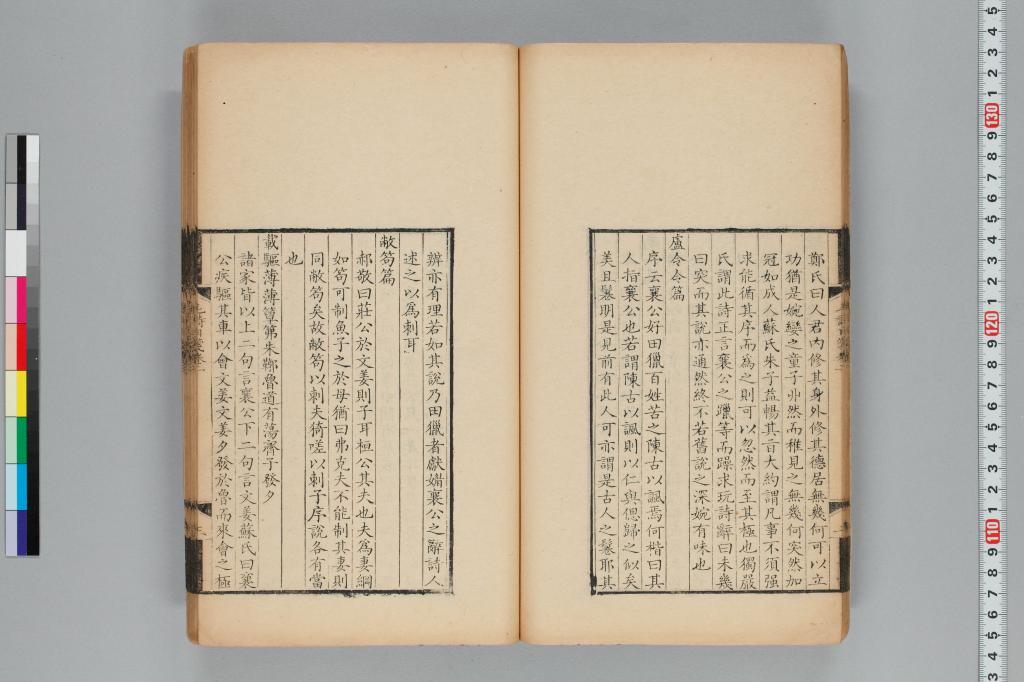 鄭氏曰人君內修其身外修其德居無幾何可以立
功猶是婉孌之童子丱然而稚見之無幾何突然加
冠如成人蘇氏朱子益暢其旨大約謂凡事不須强
求能循其序而為之則可以忽然而至其極也獨嚴
氏謂此詩正言襄公之躐等而躁求玩詩辭曰未幾
曰突而其說亦通然終不若舊說之深婉有味也
盧令令篇
序云襄公好田獵百姓苦之陳古以諷焉何楷曰其
人指襄公也若謂陳古以諷則以仁與偲歸之似矣
美且鬈明是見前有此人可亦謂是古人之鬈耶其
辨亦有理若如其說乃田獵者獻媚襄公之辭詩人
述之以為刺耳
敝笱篇
郝敬曰莊公於文姜則子耳桓公其夫也夫為妻綱
如笱可制魚子之於母猶曰弗克夫不能制其妻則
同敝笱矣故敝笱以刺夫猗嗟以刺子序說各有當
也
載驅薄薄簟茀朱鞹魯道有蕩齊子發夕
諸家皆以上二句言襄公下二句言文姜蘇氏曰襄
公疾驅其車以會文姜文姜夕發於魯而來會之極
130
120
110